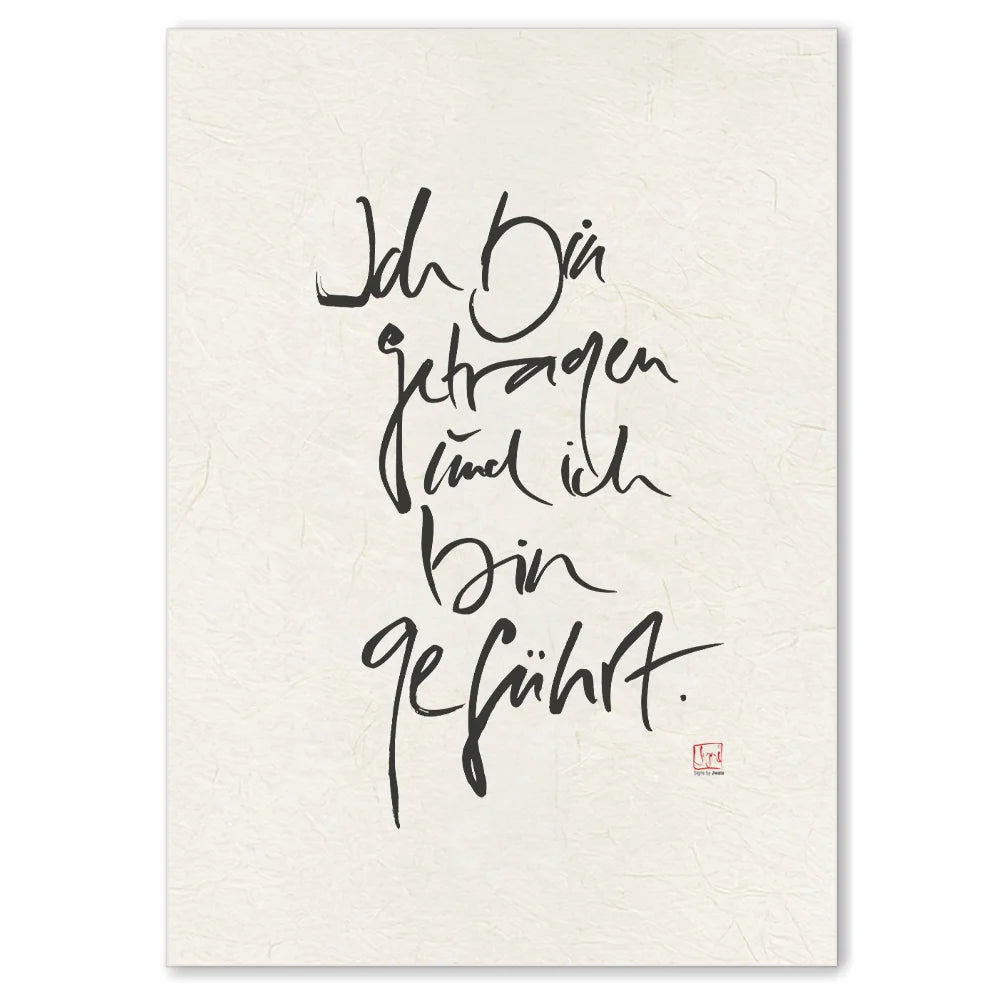 Ich bin
getragen
und ich
bin
geführt.
Signs by Jwala